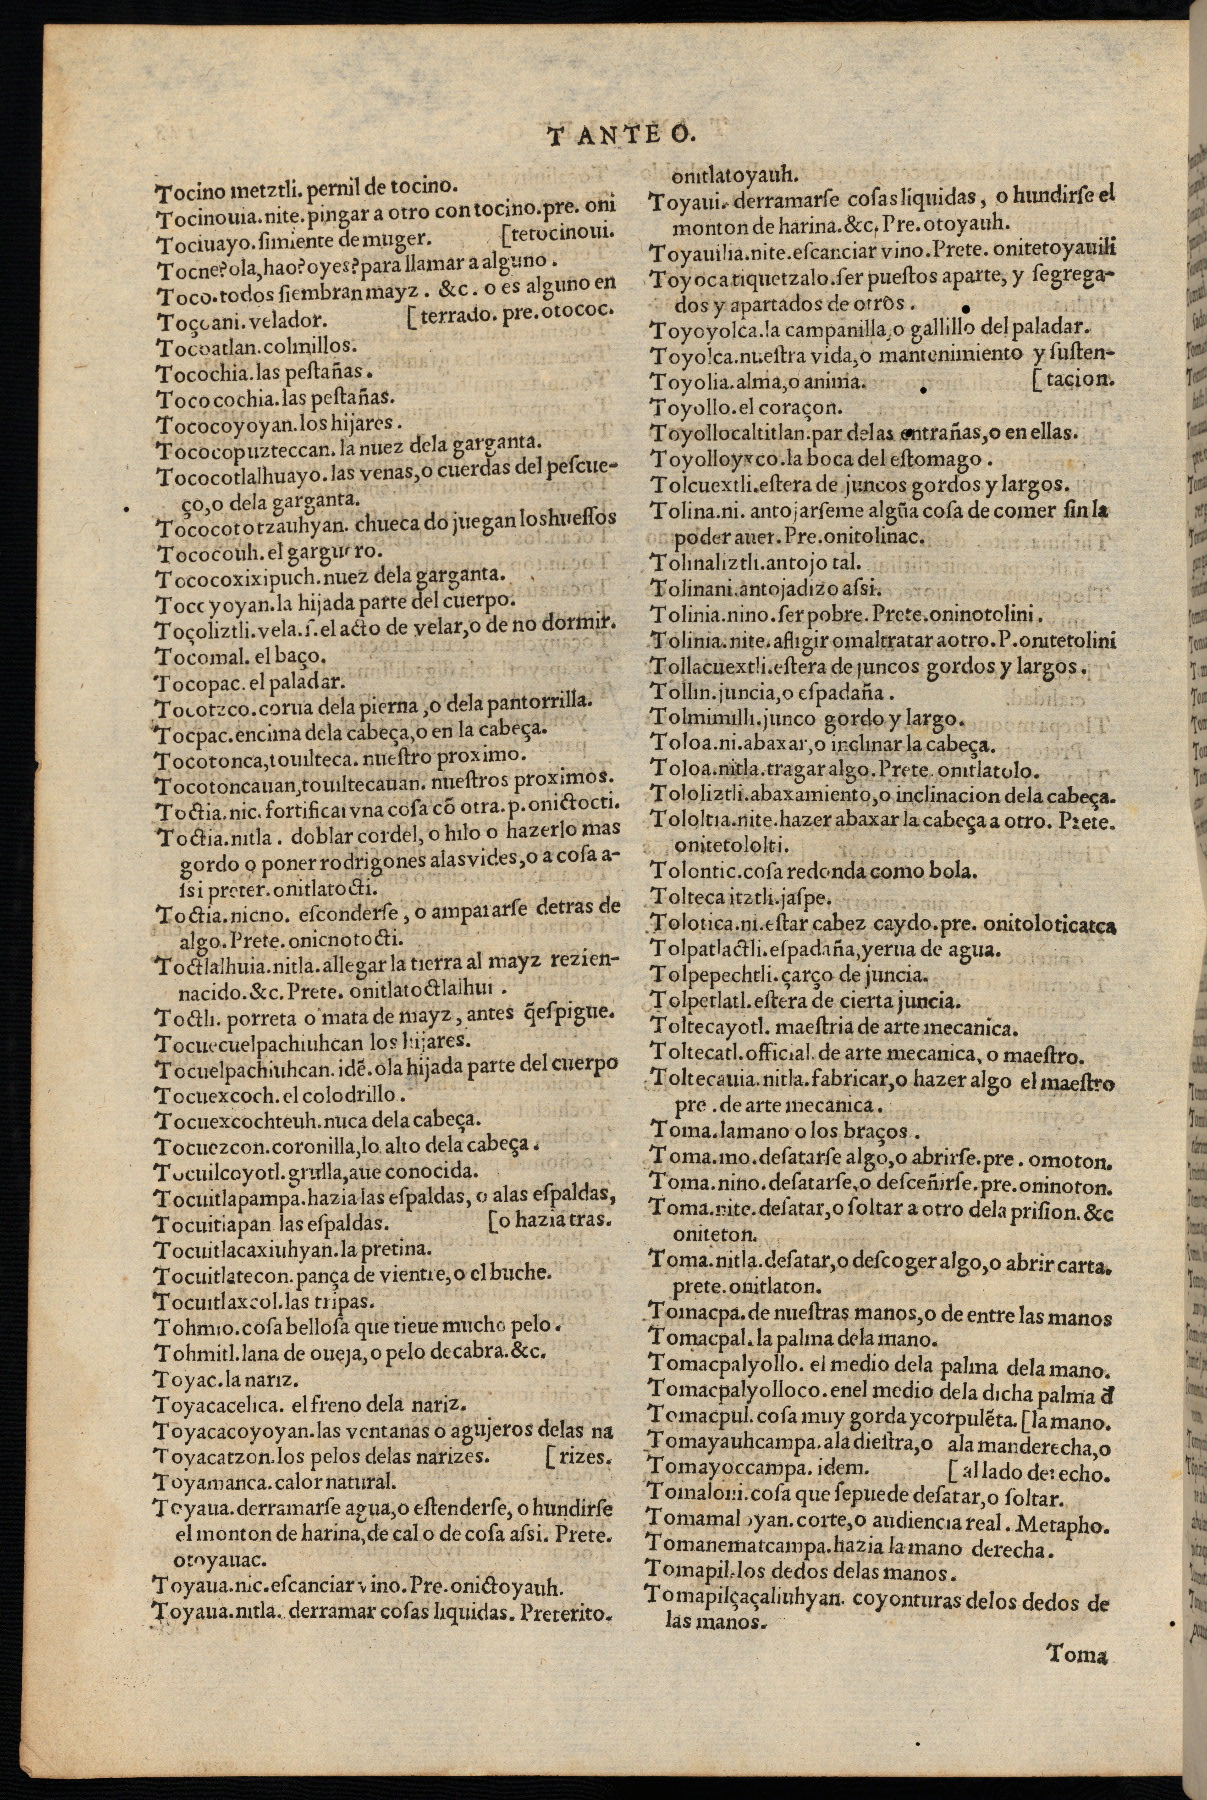 T ANTE O.
Tocino metztli. pernil de tocino.
Tocinouia.nite.pingar a otro con tocino.pre. oni
Tociuayo.ſimiente de muger. [tetocinoui.
Tocne?ola,hao?oyes?para llamar a alguno.
Toco.todos ſiembran mayz. &c. o es alguno en
Toçoani.velador. [terrado. pre.otococ.
Tocoatlan.colmillos.
Tocochia.las peſtañas.
Tococochia.las peſtañas.
Tococoyoyan.los hijares.
Tococopuzteccan. la nuez dela garganta.
Tococotlalhuayo.las venas,o cuerdas del peſcue-
ço,o dela garganta.
Tococototzauhyan. chueca do juegan los hueſſos
Tococouh.el garguero.
Tococoxixipuch.nuez dela garganta.
Tococyoyan.la hijada parte del cuerpo.
Toçoliztli.vela.ſ.el acto de velar,o de no dormir.
Tocomal.el baço.
Tocopac.el paladar.
Tocotzco.corua dela pierna,o dela pantorrilla.
Tocpac.encima dela cabeça,o en la cabeça.
Tocotonca,touilteca. nueſtro proximo.
Tocotoncauan,touiltecauan. nueſtros proximos.
Toctia.nic.fortificar vna coſa cõ otra.p.onictocti.
Toctia.nitla. doblar cordel, o hilo o hazerlo mas
gordo o poner rodrigones alas vides,o a coſa a-
ſsi preter.onitlatocti.
Toctia.nicno. eſconderſe, o ampararſe detras de
algo.Prete.onicnotocti.
Toctlalhuia.nitla.allegar la tierra al mayz rezien-
nacido.&c.Prete. onitlatoctlalhui.
Toctli. porreta o mata de mayz, antes q̃eſpigue.
Tocuecuelpachiuhcan los hijares.
Tocuelpachiuhcan.idẽ.o la hijada parte del cuerpo
Tocuexcoch.el colodrillo.
Tocuexcochteuh.nuca dela cabeça.
Tocuezcon.coronilla,lo alto dela cabeça.
Tocuilcoyotl.grulla,aue conocida.
Tocuitlapampa.hazia las eſpaldas, o alas eſpaldas,
Tocuitlapan las eſpaldas. [o hazia tras.
Tocuitlacaxiuhyan.la pretina.
Tocuitlatecon.pança de vientre,o el buche.
Tocuitlaxcol.las tripas.
Tohmio.coſa belloſa que tieue mucho pelo.
Tohmitl.lana de oueja,o pelo de cabra.&c.
Toyac.la nariz.
Toyacacelica. el freno dela nariz.
Toyacacoyoyan.las ventanas o agujeros delas na
Toyacatzon.los pelos delas narizes. [rizes.
Toyamanca.calor natural.
Toyaua.derramarſe agua,o eſtenderſe, o hundirſe
el monton de harina,de cal o de coſa aſsi. Prete.
otoyauac.
Toyaua.nic.eſcanciar vino.Pre.onictoyauh.
Toyaua.nitla. derramar coſas liquidas. Preterito.
onitlatoyauh.
Toyaui. derramarſe coſas liquidas, o hundirſe el
monton de harina.&c. Pre.otoyauh.
Toyauilia.nite.eſcanciar vino.Prete.onitetoyauili
Toyocatiquetzalo.ſer pueſtos aparte, y ſegrega-
dos y apartados de otros.
Toyoyolca.la campanilla,o gallillo del paladar.
Toyolca.nueſtra vida,o mantenimiento y ſuſten-
Toyolia.alma,o anima. [tacion.
Toyollo.el coraçon.
Toyollocaltitlan.par delas entrañas,o en ellas.
Toyolloyxco.la boca del eſtomago.
Tolcuextli.eſtera de juncos gordos y largos.
Tolina.ni. antojarſeme algũa coſa de comer ſin la
poder auer.Pre.onitolinac.
Tolinaliztli.antojo tal.
Tolinani.antojadizo aſsi.
Tolinia.nino.ſer pobre. Prete.oninotolini.
Tolinia.nite.afligir o maltratar a otro.P.onitetolini
Tollacuextli.eſtera de juncos gordos y largos.
Tollin.juncia,o eſpadaña.
Tolmimilli.junco gordo y largo.
Toloa.ni.abaxar,o inclinar la cabeça.
Toloa.nitla.tragar algo.Prete.onitlatolo.
Tololiztli.abaxamiento,o inclinacion dela cabeça.
Tololtia.nite.hazer abaxar la cabeça a otro. Prete.
onitetololti.
Tolontic.coſa redonda como bola.
Tolteca itztli.jaſpe.
Tolotica.ni.eſtar cabez caydo.pre. onitoloticatca
Tolpatlactli.eſpadaña,yerua de agua.
Tolpepechtli.çarço de juncia.
Tolpetlatl.eſtera de cierta juncia.
Toltecayotl. maeſtria de arte mecanica.
Toltecatl.official de arte mecanica, o maeſtro.
Toltecauia.nitla.fabricar,o hazer algo el maeſtro
pre.de arte mecanica.
Toma.la mano o los braços.
Toma.mo.deſatarſe algo,o abrirſe.pre. omoton.
Toma.nino.deſatarſe,o deſceñirſe.pre.oninoton.
Toma.nite.deſatar,o ſoltar a otro dela priſion.&c
oniteton.
Toma.nitla.deſatar,o deſcoger algo,o abrir carta.
prete.onitlaton.
Tomacpa.de nueſtras manos,o de entre las manos
Tomacpal.la palma dela mano.
Tomacpalyollo. el medio dela palma dela mano.
Tomacpalyolloco.enel medio dela dicha palma đ
Tomacpul.coſa muy gorda y corpulẽta. [la mano.
Tomayauhcampa.ala dieſtra,o ala manderecha,o
Tomayoccampa. idem. [al lado derecho.
Tomaloni.coſa que ſe puede deſatar,o ſoltar.
Tomamaloyan.corte,o audiencia real. Metapho.
Tomanematcampa.hazia la mano derecha.
Tomapil.los dedos delas manos.
Tomapilçaçaliuhyan. coyonturas delos dedos de
las manos.
Toma